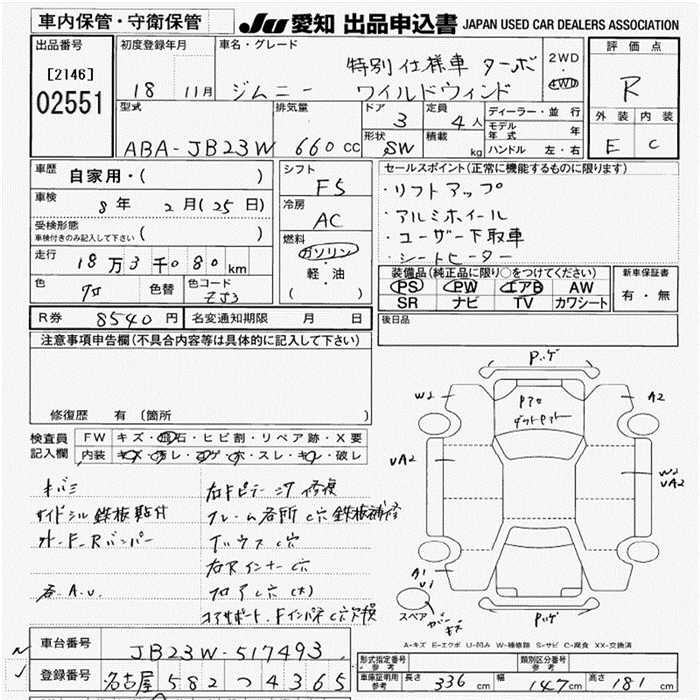 車内保管・守衛保管
JU 愛知 出品申込書 JAPAN USED CAR DEALERS ASSOCIATION
出品番号
[2146]
02551
初度登録年月
18 11月
車名・グレード
特別仕様車 ターボ
ジムニー ワイルドウィンド
2WD
・
4WD
評価点
R
外装 内装
E C
型式
ABA-JB23W
排気量
660 cc
ドア
3
定員
4人
形状
SW
積載
kg
ディーラー・並行
モデル年式 年
ハンドル 左・右
車歴
自家用・( )
車検
8年 2月(25日)
受検形態
車検付きのみ記入して下さい ( )
走行
18万3千080km
色
色替
色コード
ZJ3
シフト
F5
冷房
AC
燃料
ガソリン
・
軽・油
( )
セールスポイント(正常に機能するものに限ります)
・リフトアップ
・アルミホイール
・ユーザー下取車
・シートヒーター
装備品(純正品に限り○をつけてください)
PS PW エアB AW
SR ナビ TV カワシート
新車保証書
有・無
R券 8540円
名変通知期限 月 日
後日品
注意事項申告欄(不具合内容等は具体的に記入して下さい)
修復歴 有 (箇所
検査員記入欄
FW キズ・飛石・ヒビ割・リペア跡・X要
内装 キズ・汚レ・コゲ・ホ・スレ・キレ・破レ
キバミ
サイドシル鉄板貼付
オーF・Rバンパー
各A.U.
フレーム各所C穴鉄板補修
右Rインナーc穴
フロアc穴(大)
Pいゲ
W2
A2
UA2
W2
UA2
A1
U1
スペア
キズ
Pいゲ
A-キズ E-エクボ U-凹み W-補修跡 S-サビ C-腐食 XX-交換済
車台番号
JB23W-517493
登録番号
名古屋 582 つ 4365
形式指定番号
参考
類別区分番号
参考
車庫証明用
参考
長さ 336cm
幅 147cm
高さ 181cm